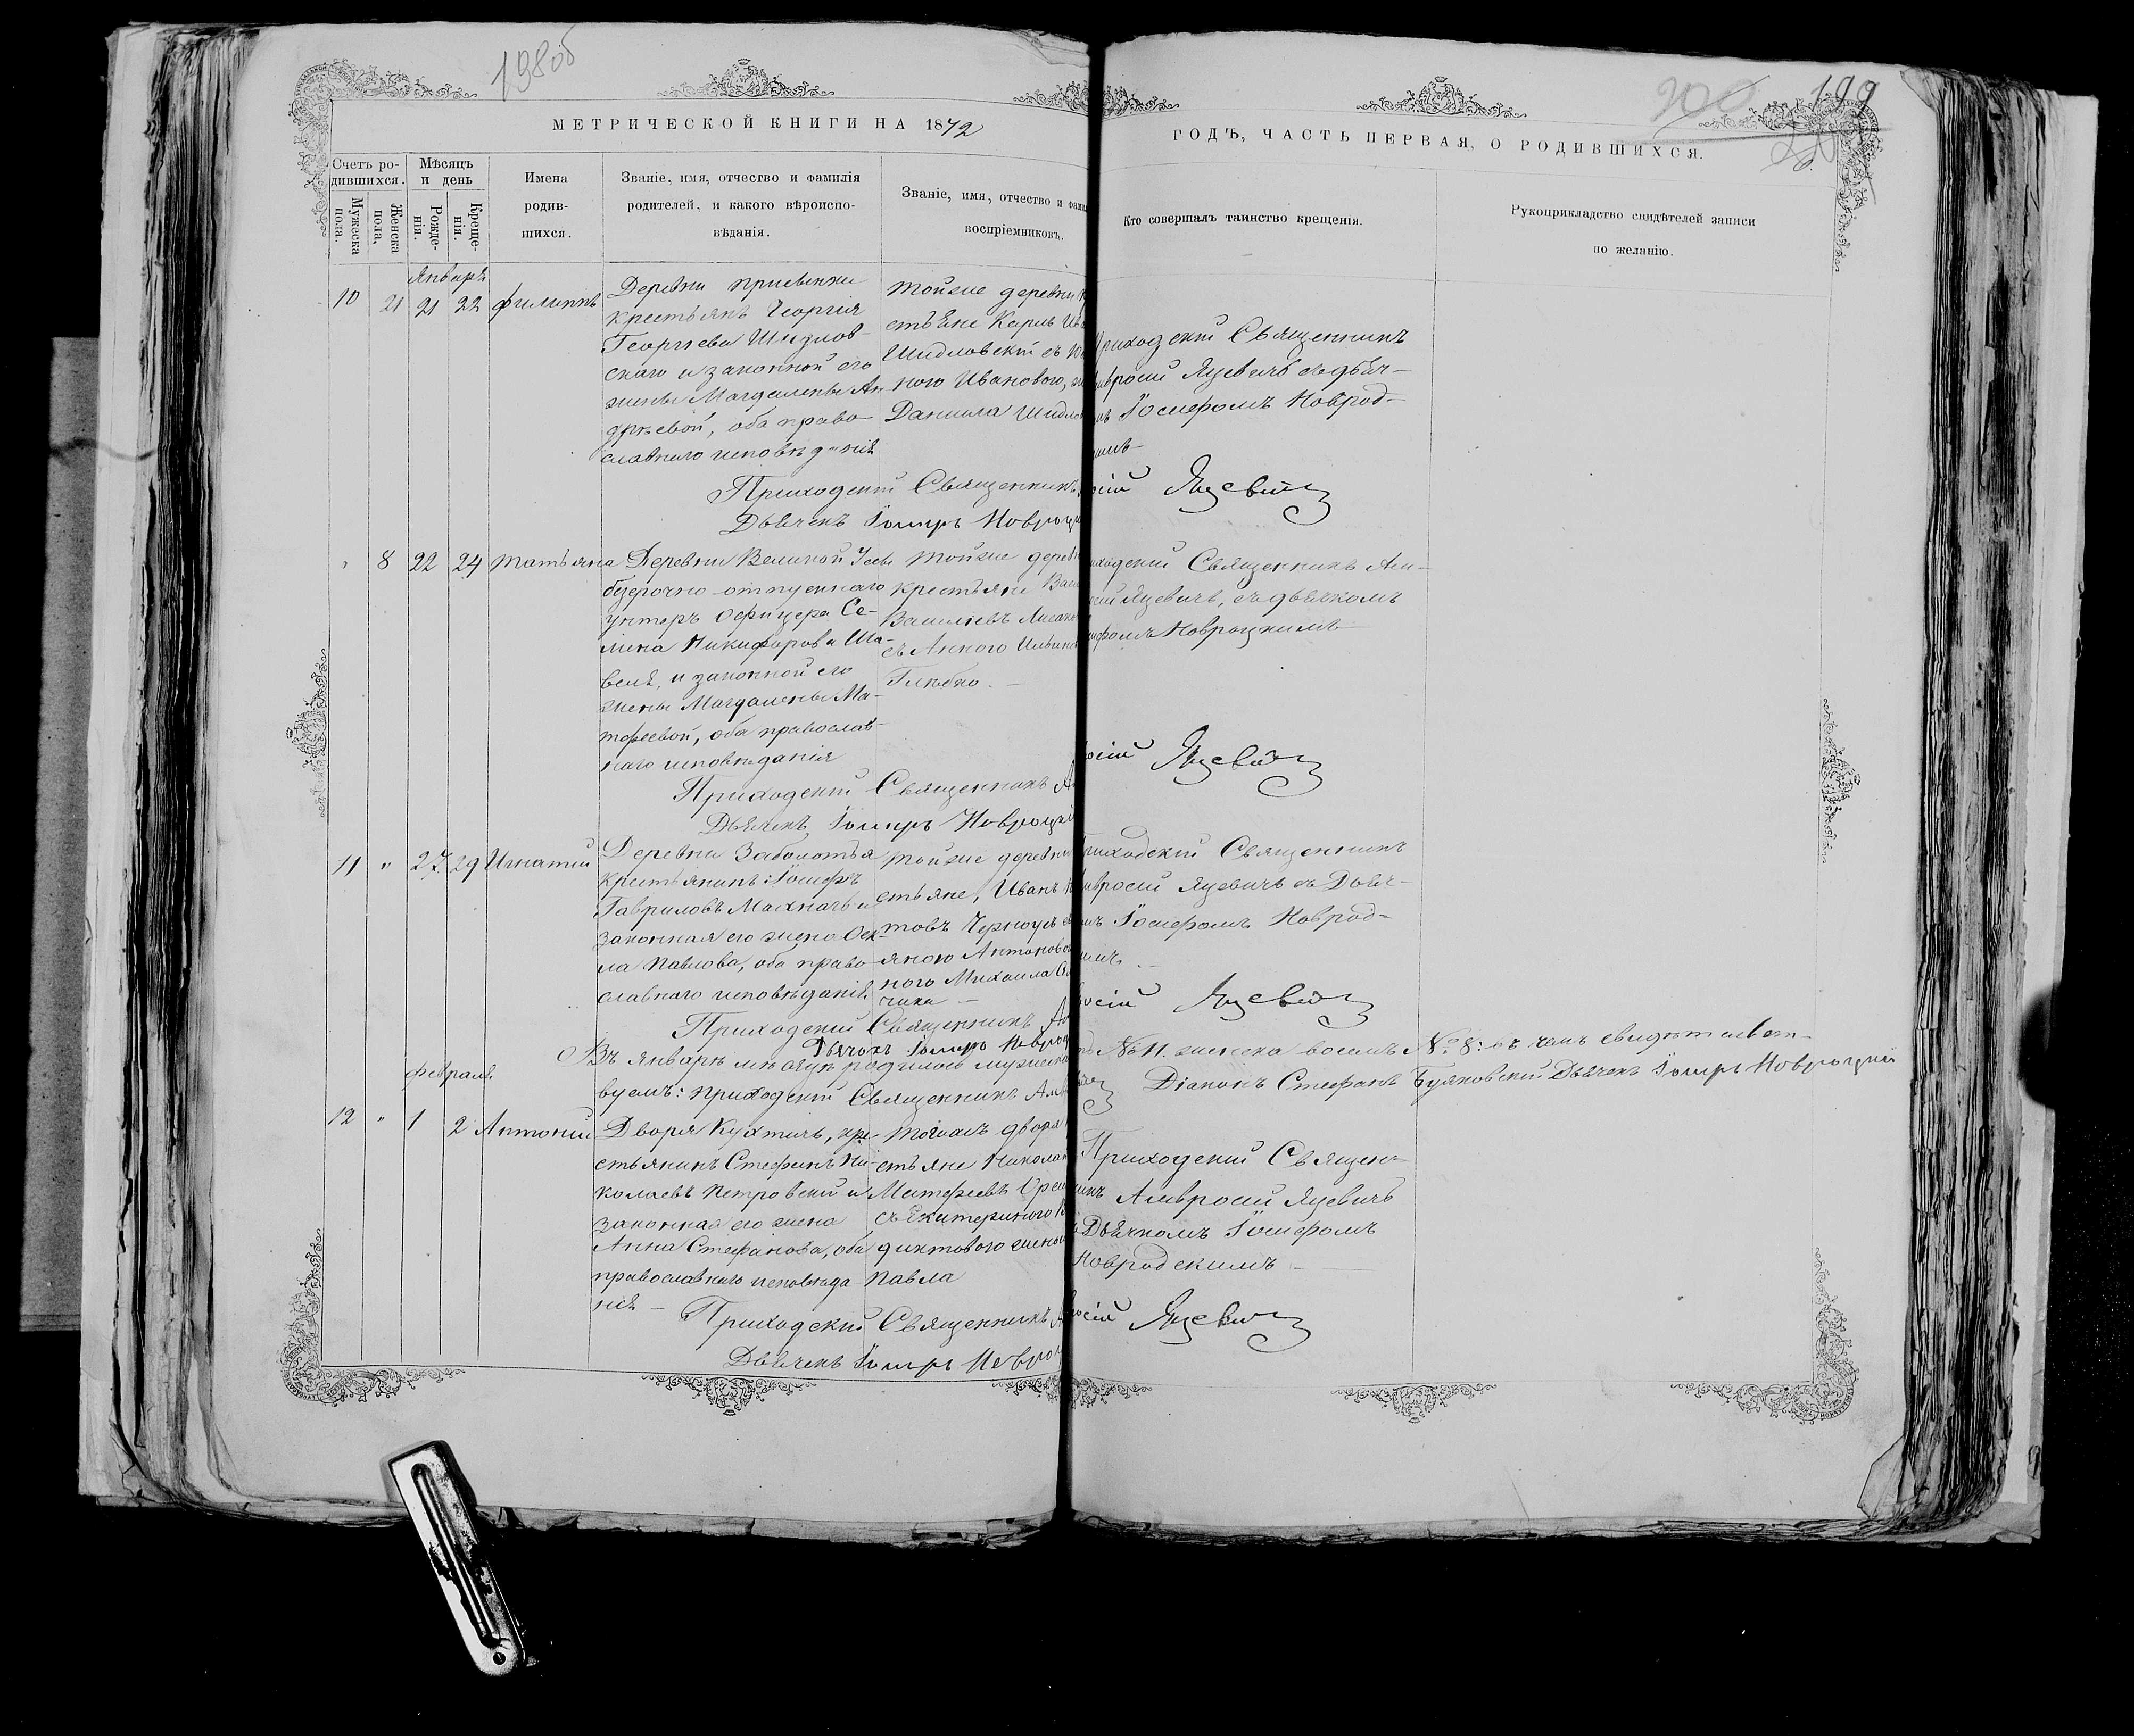 198об
200 199
МЕТРИЧЕСКОЙ КНИГИ НА 1872
ГОДѢ, ЧАСТЬ ПЕРВАЯ, О РОДИВШИХСЯ.
Счетъ ро-
дившихся.
Мужеска
пола.
Женска
пола.
Мѣсяцъ
и день
Рожде-
нія.
Креще-
нія.
Имена
родив-
шихся.
Званіе, имя, отчество и фамилія
родителей, и какого вѣроиспо-
вѣданія.
Званіе, имя, отчество и фами
воспріемниковъ.
Кто совершалъ таинство крещенія.
Рукоприкладство свидѣтелей записи
по желанію.
Январь
10 21 21 22 Филиппъ
Деревни
крестьянъ Георгія
Георгіева Шидлов-
скаго и законной его
жены Магдалены Ан-
дреевой, оба право-
славнаго исповѣданія
тойже деревни
стьяне Карлъ Ив
Шидловскій съ
ною Ивановою,
Данила Шидло
Приходскій Священникъ
мвросій Яцевичъ съ дьяч-
Іосифомъ Наврод-
Приходскій Священникъ
осій Яцевичъ
Дьячекъ Іосифъ Навроц
8 22 24 Татьяна
Деревни Великой Усы
безсрочно-отпускнаго
унтеръ Офицера Се-
мена Никифорова Ша-
веля, и законной его
жены Магдалены Ма-
тфеевой, оба православ-
наго исповѣданія
тойже дерев
крестьяне
Васильевъ
съ Анною
Глѣбко.
иходскій Священникъ Ам-
сій Яцевичъ, съ дьячкомъ
ифомъ Навроцкимъ
Приходскій Священникъ А
осій Яцевичъ
Дьячекъ Іосифъ Навроцкі
11 " 27 29 Игнатій
Деревни Заболотья
крестьянинъ: Іосифъ
Гавриловъ Махначъ и
законная его жена Фек-
ла Павлова, оба право-
славнаго исповѣданія
тойже деревни
стьяне, Иванъ
товъ Черноусъ
яною Антоново
ною Михаила
чика
риходскій Священникъ
мвросій Яцевичъ съ Дьяч-
мъ Іосифомъ Наврод-
Приходскій Священникъ Ам
росій Яцевичъ
Дьячекъ Іосифъ Навроц
Въ Январѣ мѣсяцѣ родилось мужеска
№ 11. женска восемь № 8: въ чемъ свидѣтельст-
вуемъ: приходскій Священникъ Амв
Діаконъ Стефанъ Буяковскій Дьячекъ Іосифъ Навроцкій
Февраля
12 " 1 2 Антоній
Двора Кухтичъ, кре-
стьянинъ Стефанъ Ни-
колаевъ Петровскій и
законная его жена
Анна Стефанова, оба
православнаго исповѣда
нія
тогожъ двора
стьяне Никола
Матфеевъ
съ Екатериною
диктовою женою
Павла
Приходскій Священ-
никъ Амвросій Яцевичъ
Дьячкомъ Іосифомъ
Навродскимъ
Приходскій Священникъ А
росій Яцевичъ
Дьячекъ Іосифъ Навроц